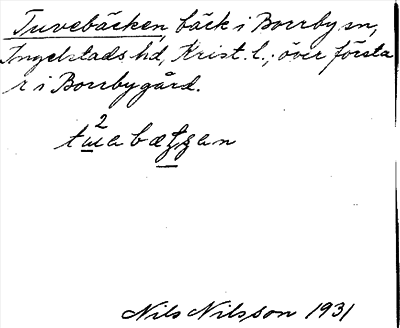 Tuvebäcken, bäck i Borrby sn,
Ingelstads hd, Krist. l.; över första
r i Borrbygård.
Nils Nilsson 1931